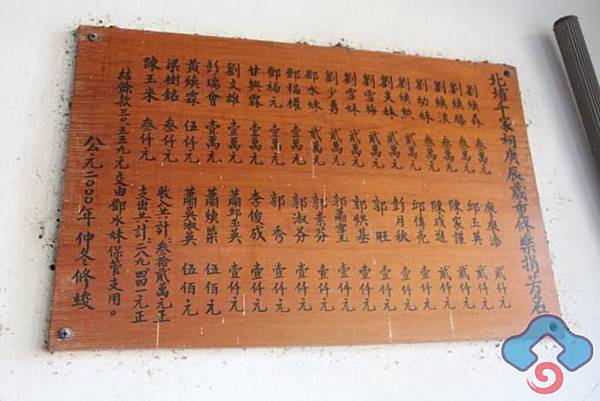 北埔千家祠庚辰歲重修樂捐芳名
劉煥森 叁萬元
劉煥勝 叁萬元
劉煥浪 叁萬元
劉幼妹 叁萬元
劉煥勲 貳萬元
劉艾妹 貳萬元
劉雪梅 貳萬元
劉雪妹 貳萬元
劉少勇 貳萬元
鄧水妹 壹萬元
鄧福權 壹萬元
鄧福元 壹萬元
甘興霖 壹萬元
劉文雄 壹萬元
彭瑞會 壹萬元
黃煥霖 伍仟元
梁樹銘 叁仟元
陳玉來 叁仟元
廖庚添 貳仟元
邱玉英 貳仟元
陳家謹 貳仟元
陳成進 貳仟元
邱傳亮 壹仟元
彭月秋 壹仟元
郭旺 壹仟元
郭炳基 壹仟元
郭蕭雪玉 壹仟元
郭素芬 壹仟元
郭淑芬 壹仟元
郭秀 壹仟元
李俊成 壹仟元
蕭邱玉英 壹仟元
蕭煥榮 伍佰元
蕭吳淑英 伍佰元
收入共計：叁拾貳萬元正
支出共計：二八九四四一元正
結餘款三〇五五九元交由鄧水妹保管支用。
公元二〇〇〇年仲冬修竣